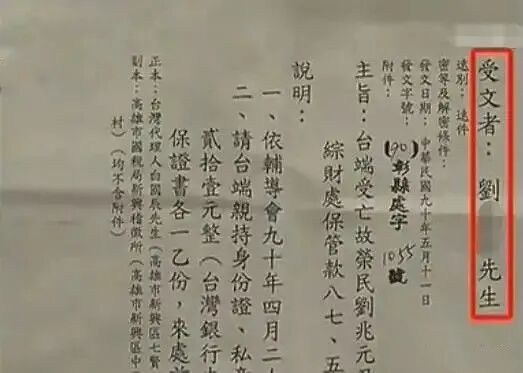 受文者：劉 先生
速別：速件
密等及解密條件：
發文日期：中華民國九十年五月十一日
發文字號：(90)彰縣處字 1055 號
附件：
主旨：台端受亡故榮民劉兆元
綜財處保管款八七、五
說明：
一、依輔導會九十年四月二
二、請台端親持身份證、私
貳拾壹元整（台灣銀行
保證書各一乙份，來處
正本：台灣代理人白國辰先生（高雄市新興區七賢
副本：高雄市國稅局新興稽徵所（高雄市新興區中
村）（均不含附件）